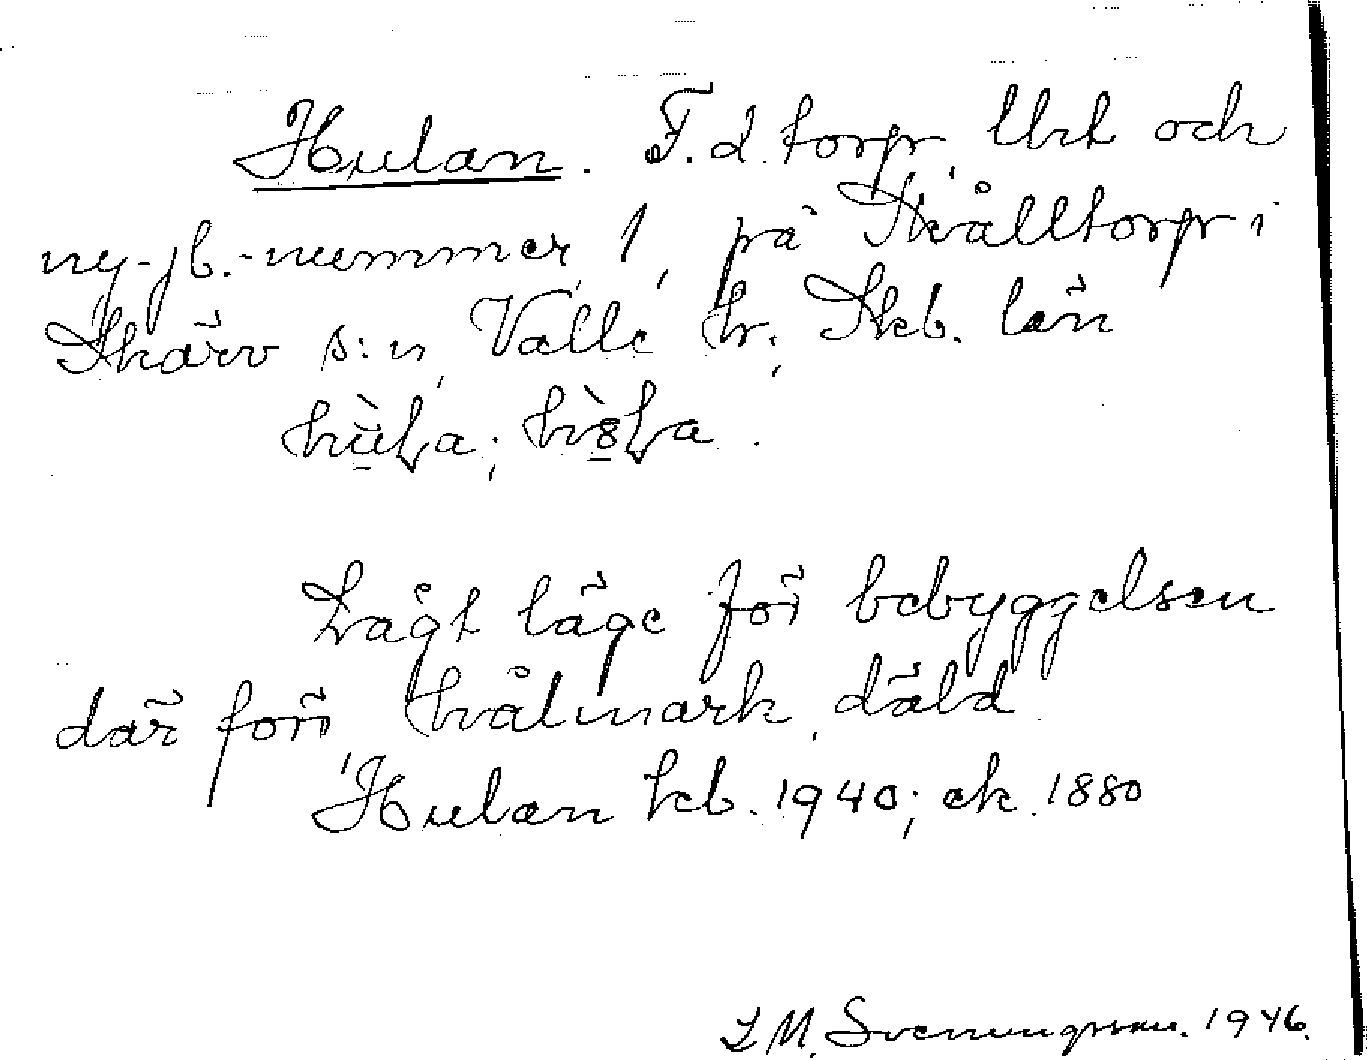 Hulan. F.d. torp, lht och
ny-jb.-nummer, 1, på Skålltorp i
Skärv s:n, Valle hd, Skb. län
hù̠ɫa; hɤ̠̀ɫa.
Lågt läge för bebyggelsen
där förr, hålmark, däld.
Hulan hcb. 1940; ek. 1880
L M. Svenungsson. 1946.